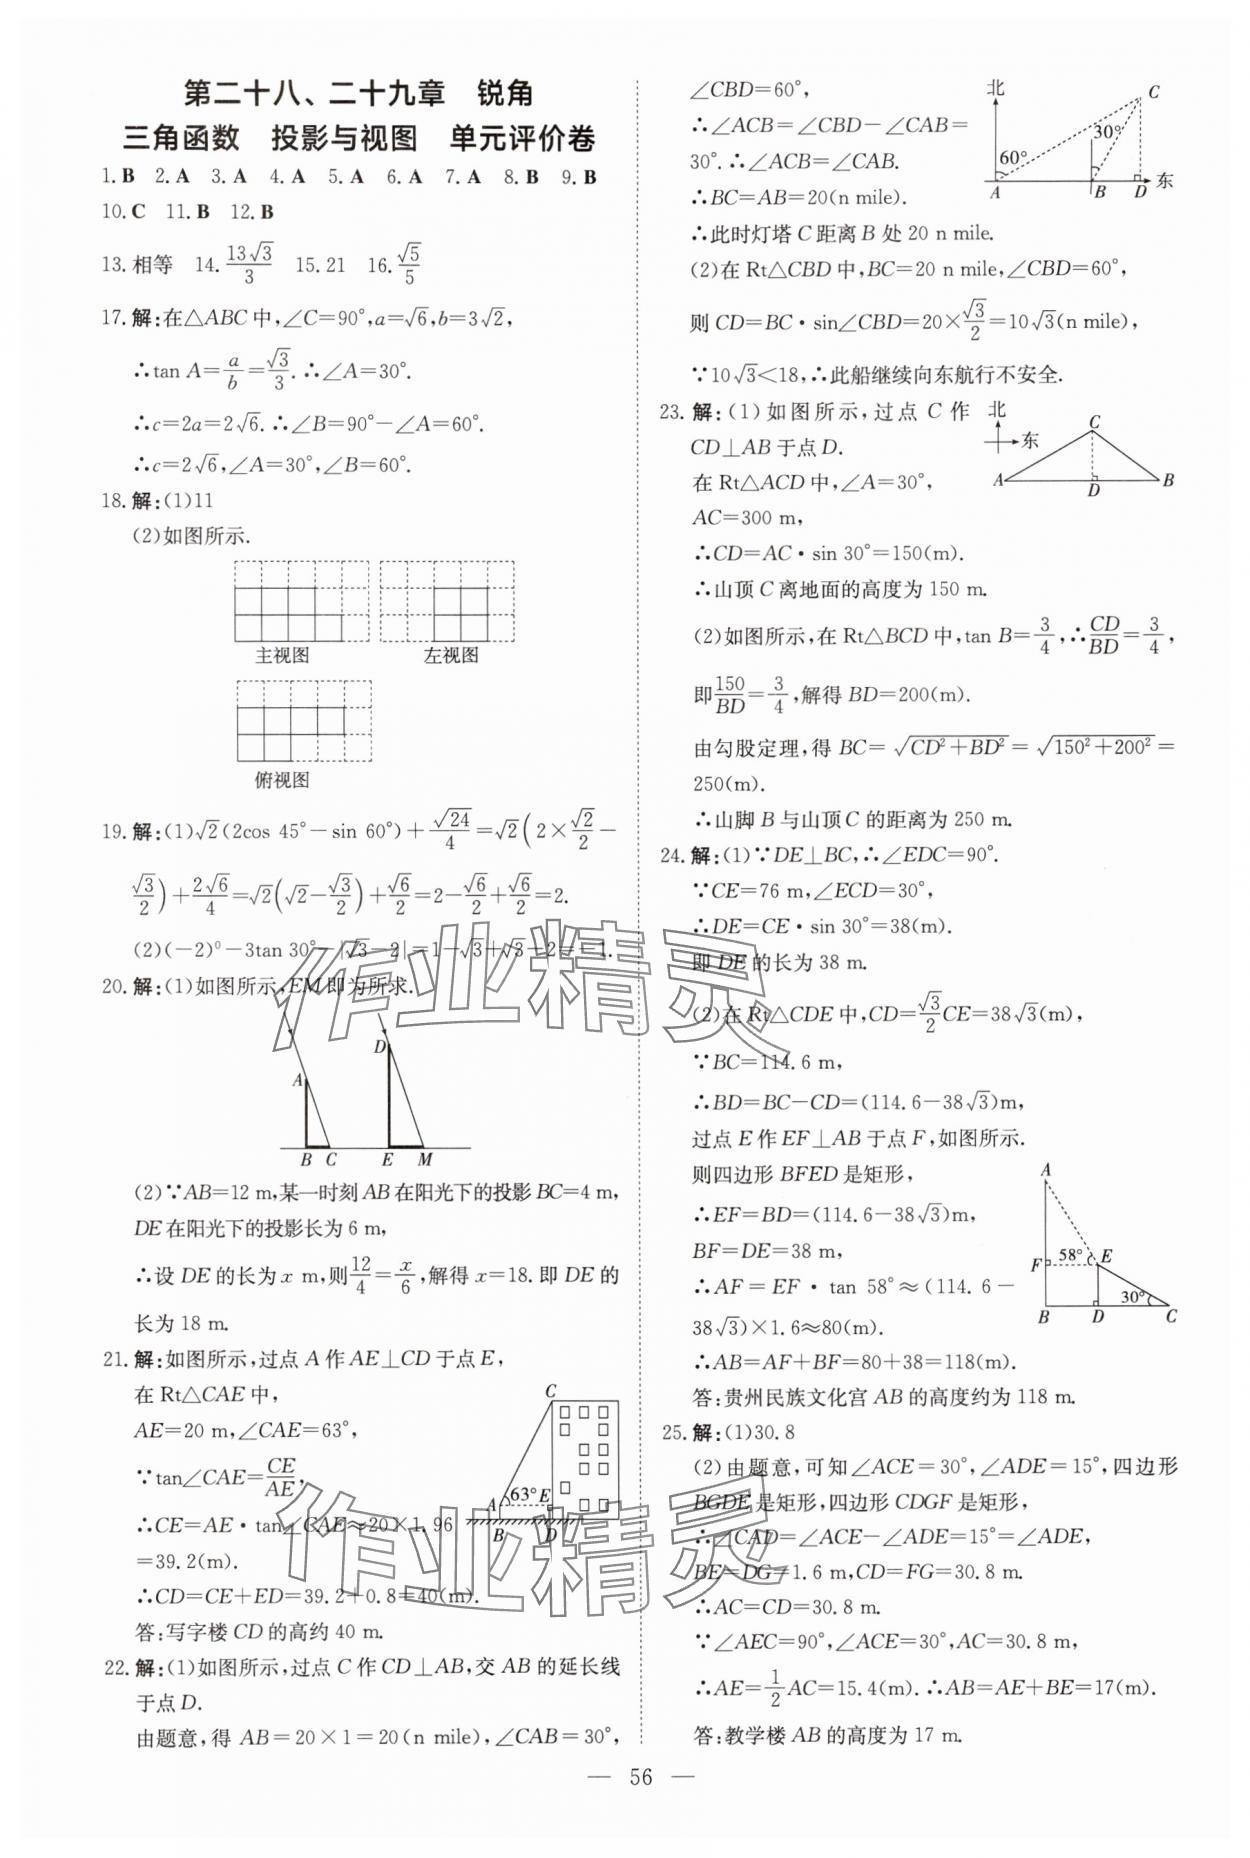 第二十八、二十九章　锐角
三角函数　投影与视图　单元评价卷
1.B　2.A　3.A　4.A　5.A　6.A　7.A　8.B　9.B
10.C　11.B　12.B
13.相等　14.13√3/3　15.21　16.√5/5
17.解:在△ABC中,∠C=90°,a=√6,b=3√2,
∴tan A=a/b=√3/3.∴∠A=30°.
∴c=2a=2√6.∴∠B=90°−∠A=60°.
∴c=2√6,∠A=30°,∠B=60°.
18.解:(1)11
(2)如图所示.
主视图　左视图
俯视图
19.解:(1)√2(2cos 45°−sin 60°)+√24/4=√2(2×√2/2−
√3/2)+2√6/4=√2(√2−√3/2)+√6/2=2−√6/2+√6/2=2.
(2)(−2)⁰−3tan 30°−|√3−2|=1−√3+√3−2=−1.
20.解:(1)如图所示,EM即为所求.
D
A
B C E M
(2)∵AB=12 m,某一时刻AB在阳光下的投影BC=4 m,
DE在阳光下的投影长为6 m,
∴设DE的长为x m,则12/4=x/6,解得x=18.即DE的
长为18 m.
21.解:如图所示,过点A作AE⊥CD于点E,
在Rt△CAE中,
AE=20 m,∠CAE=63°,
∵tan∠CAE=CE/AE,
∴CE=AE·tan∠CAE≈20×1.96
=39.2(m).
C
A 63° E
B D
∴CD=CE+ED=39.2+0.8=40(m).
答:写字楼CD的高约40 m.
22.解:(1)如图所示,过点C作CD⊥AB,交AB的延长线
于点D.
由题意,得AB=20×1=20(n mile),∠CAB=30°,
∠CBD=60°,
∴∠ACB=∠CBD−∠CAB=
30°.∴∠ACB=∠CAB.
∴BC=AB=20(n mile).
北 C
30°
60°
A B D 东
∴此时灯塔C距离B处20 n mile.
(2)在Rt△CBD中,BC=20 n mile,∠CBD=60°,
则CD=BC·sin∠CBD=20×√3/2=10√3(n mile),
∵10√3<18,∴此船继续向东航行不安全.
23.解:(1)如图所示,过点C作
CD⊥AB于点D.
在Rt△ACD中,∠A=30°,
AC=300 m,
北
东
C
A D B
∴CD=AC·sin 30°=150(m).
∴山顶C离地面的高度为150 m.
(2)如图所示,在Rt△BCD中,tan B=3/4,∴CD/BD=3/4,
即150/BD=3/4,解得BD=200(m).
由勾股定理,得BC=√(CD²+BD²)=√(150²+200²)=
250(m).
∴山脚B与山顶C的距离为250 m.
24.解:(1)∵DE⊥BC,∴∠EDC=90°.
∵CE=76 m,∠ECD=30°,
∴DE=CE·sin 30°=38(m).
即DE的长为38 m.
(2)在Rt△CDE中,CD=√3/2CE=38√3(m),
∵BC=114.6 m,
∴BD=BC−CD=(114.6−38√3)m,
过点E作EF⊥AB于点F,如图所示.
则四边形BFED是矩形,
∴EF=BD=(114.6−38√3)m,
BF=DE=38 m,
∴AF=EF·tan 58°≈(114.6−
38√3)×1.6≈80(m).
A
F 58° E
30°
B D C
∴AB=AF+BF=80+38=118(m).
答:贵州民族文化宫AB的高度约为118 m.
25.解:(1)30.8
(2)由题意,可知∠ACE=30°,∠ADE=15°,四边形
BGDE是矩形,四边形CDGF是矩形,
∴∠CAD=∠ACE−∠ADE=15°=∠ADE,
BE=DG=1.6 m,CD=FG=30.8 m.
∴AC=CD=30.8 m.
∵∠AEC=90°,∠ACE=30°,AC=30.8 m,
∴AE=1/2AC=15.4(m).∴AB=AE+BE=17(m).
答:教学楼AB的高度为17 m.
— 56 —
作业精灵
作业精灵